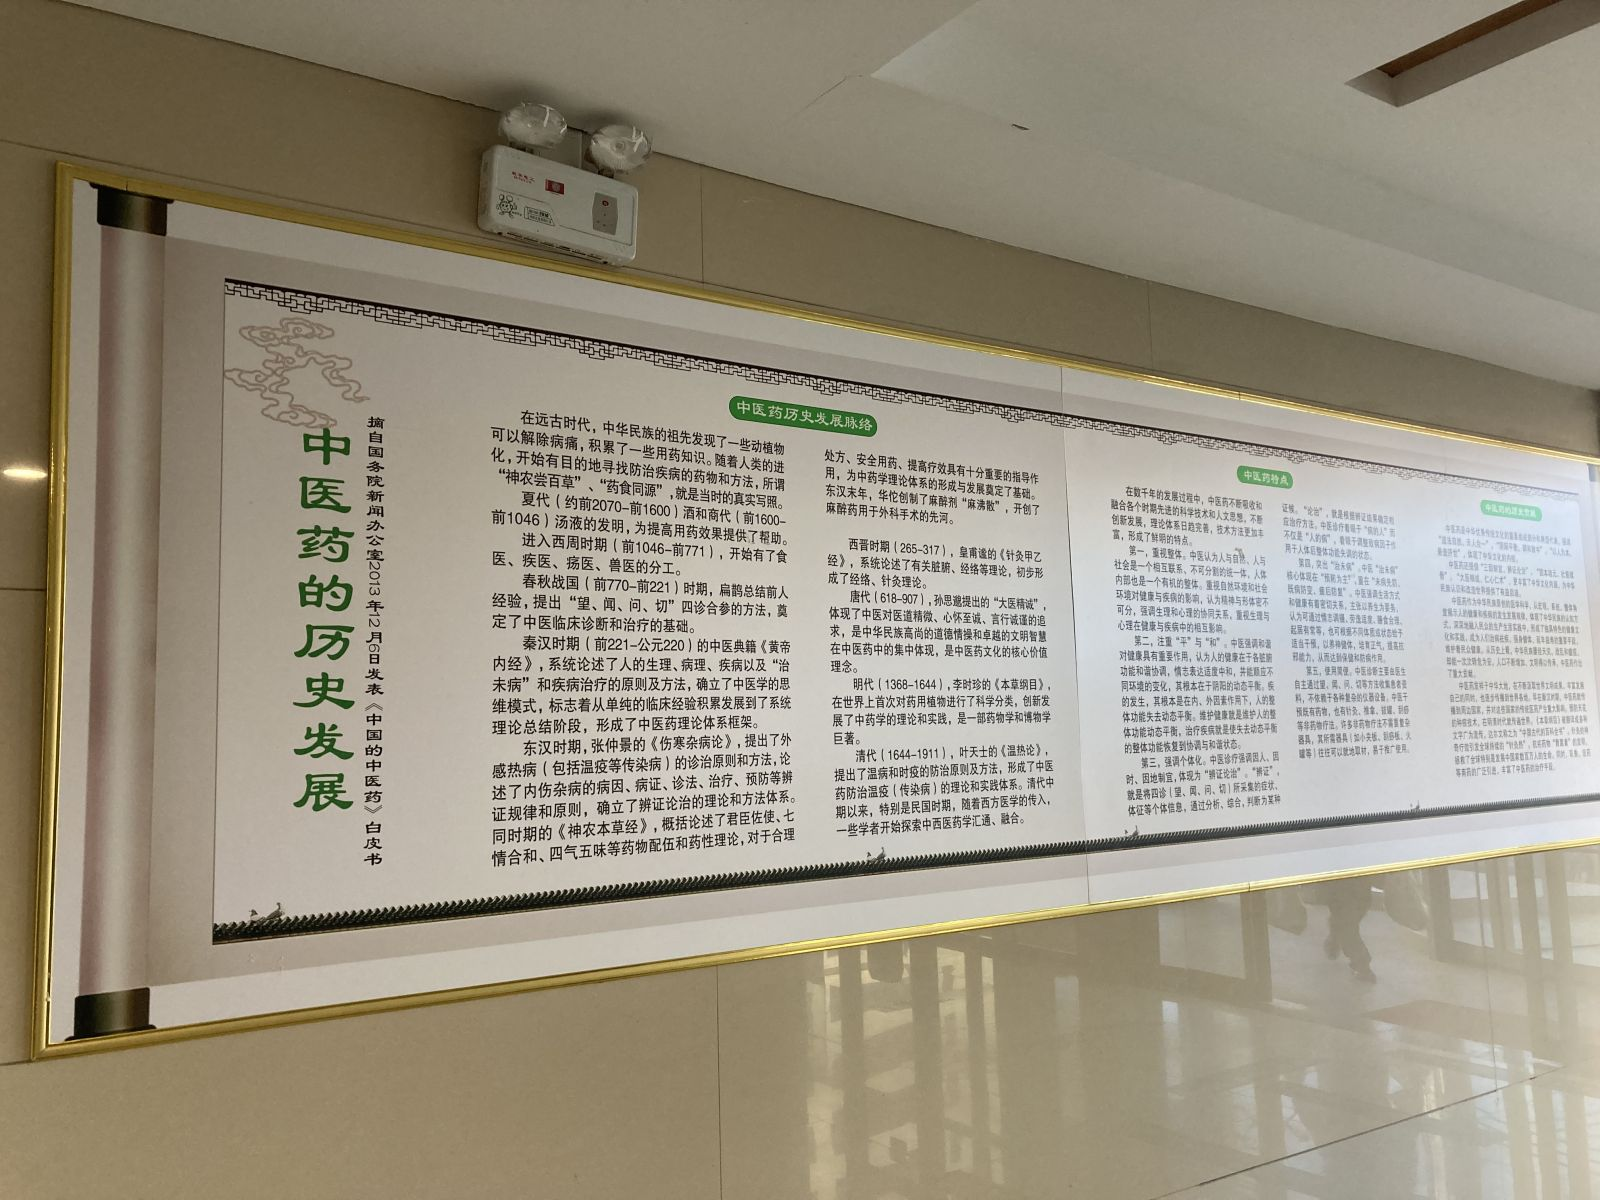 中医药的历史发展
摘自国务院新闻办公室2013年12月6日发表《中国的中医药》白皮书
中医药历史发展脉络
在远古时代，中华民族的祖先发现了一些动植物
可以解除病痛，积累了一些用药知识。随着人类的进
化，开始有目的地寻找防治疾病的药物和方法，所谓
“神农尝百草”、“药食同源”，就是当时的真实写照。
夏代（约前2070-前1600）酒和商代（前1600-
前1046）汤液的发明，为提高用药效果提供了帮助。
进入西周时期（前1046-前771），开始有了食
医、疾医、疡医、兽医的分工。
春秋战国（前770-前221）时期，扁鹊总结前人
经验，提出“望、闻、问、切”四诊合参的方法，奠
定了中医临床诊断和治疗的基础。
秦汉时期（前221-公元220）的中医典籍《黄帝
内经》，系统论述了人的生理、病理、疾病以及“治
未病”和疾病治疗的原则及方法，确立了中医学的思
维模式，标志着从单纯的临床经验积累发展到了系统
理论总结阶段，形成了中医药理论体系框架。
东汉时期，张仲景的《伤寒杂病论》，提出了外
感热病（包括温疫等传染病）的诊治原则和方法，论
述了内伤杂病的病因、病证、诊法、治疗、预防等辨
证规律和原则，确立了辨证论治的理论和方法体系。
同时期的《神农本草经》，概括论述了君臣佐使、七
情合和、四气五味等药物配伍和药性理论，对于合理
处方、安全用药、提高疗效具有十分重要的指导作
用，为中药学理论体系的形成与发展奠定了基础。
东汉末年，华佗创制了麻醉剂“麻沸散”，开创了
麻醉药用于外科手术的先河。
西晋时期（265-317），皇甫谧的《针灸甲乙
经》，系统论述了有关脏腑、经络等理论，初步形
成了经络、针灸理论。
唐代（618-907），孙思邈提出的“大医精诚”，
体现了中医对医道精微、心怀至诚、言行诚谨的追
求，是中华民族高尚的道德情操和卓越的文明智慧
在中医药中的集中体现，是中医药文化的核心价值
理念。
明代（1368-1644），李时珍的《本草纲目》，
在世界上首次对药用植物进行了科学分类，创新发
展了中药学的理论和实践，是一部药物学和博物学
巨著。
清代（1644-1911），叶天士的《温热论》，
提出了温病和时疫的防治原则及方法，形成了中医
药防治温疫（传染病）的理论和实践体系。清代中
期以来，特别是民国时期，随着西方医学的传入，
一些学者开始探索中西医药学汇通、融合。
中医药特点
在数千年的发展过程中，中医药不断吸收和
融合各个时期先进的科学技术和人文思想，不断
创新发展，理论体系日趋完善，技术方法更加丰
富，形成了鲜明的特点。
第一，重视整体。中医认为人与自然、人与
社会是一个相互联系、不可分割的统一体，人体
内部也是一个有机的整体。重视自然环境和社会
环境对健康与疾病的影响，认为精神与形体密不
可分，强调生理和心理的协同关系，重视生理与
心理在健康与疾病中的相互影响。
第二，注重“平”与“和”。中医强调和谐
对健康具有重要作用，认为人的健康在于各脏腑
功能和谐协调，情志表达适度中和，并能顺应不
同环境的变化，其根本在于阴阳的动态平衡。疾
病的发生，其根本是在内、外因素作用下，人的整
体功能失去动态平衡。维护健康就是维护人的整
体功能动态平衡，治疗疾病就是使失去动态平衡
的整体功能恢复到协调与和谐状态。
第三，强调个体化。中医诊疗强调因人、因
时、因地制宜，体现为“辨证论治”。“辨证”，
就是将四诊（望、闻、问、切）所采集的症状、
体征等个体信息，通过分析、综合，判断为某种
证候。“论治”，就是根据辨证结果确定相
应治疗方法。中医诊疗着眼于“病的人”而
不仅是“人的病”，着眼于调整致病因子作
用于人体后整体功能失调的状态。
第四，突出“治未病”。中医“治未病”
核心体现在“预防为主”，重在“未病先防、
既病防变、瘥后防复”。中医强调生活方式
和健康有着密切关系，主张以养生为要务，
认为可通过情志调摄、劳逸适度、膳食合理、
起居有常等，也可根据不同体质或状态给予
适当干预，以养神健体，培育正气，提高抗
邪能力，从而达到保健和防病作用。
第五，使用简便。中医诊断主要由医生
自主通过望、闻、问、切等方法收集患者资
料，不依赖于各种复杂的仪器设备。中医干
预既有药物，也有针灸、推拿、拔罐、刮痧
等非药物疗法。许多非药物疗法不需要复杂
器具，其所需器具（如小夹板、刮痧板、火
罐等）往往可以就地取材，易于推广使用。
中医药的历史贡献